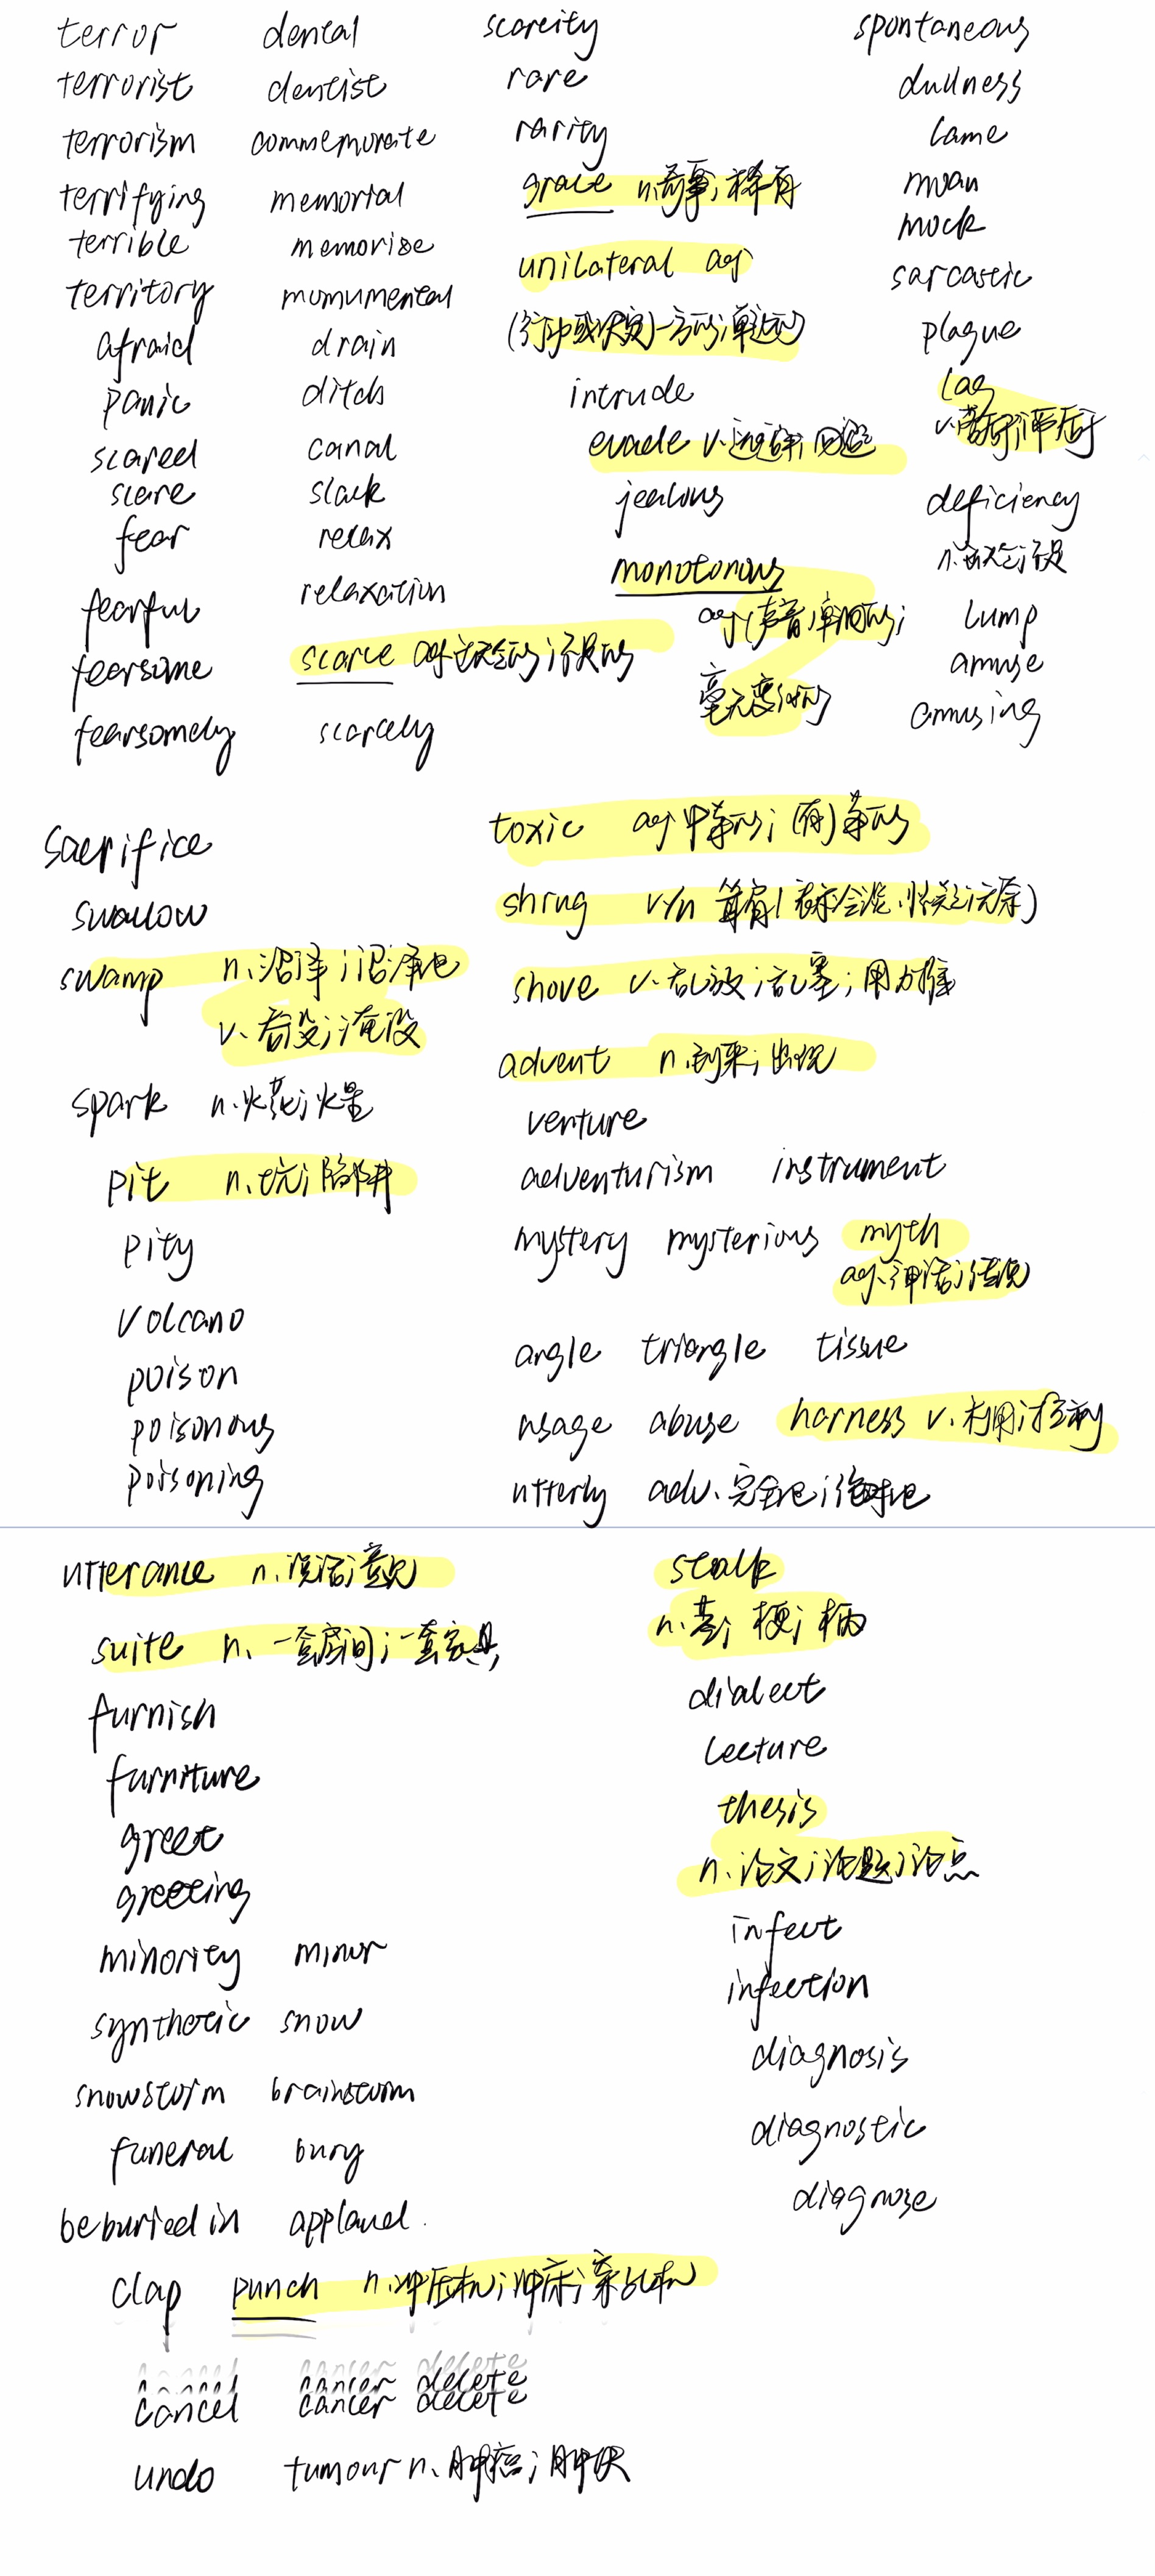 terror
terrorist
terrorism
terrifying
terrible
territory
afraid
panic
scared
scare
fear
fearful
fearsome
fearsomely
dental
dentist
commemorate
memorial
memorise
mumumental
drain
ditch
canal
slack
relax
relaxation
scarce adj 缺乏的;不足的
scarcely
scarcity
rare
rarity
grace n.奇事;稀有
unilateral adj
(行动或决定)一方的;单边的
intrude
evade v.逃避;回避
jealous
monotonous
adj(声音)单调的;
毫无变化的
spontaneous
dullness
lame
moan
mock
sarcastic
plague
lag
v.落后;滞后于
deficiency
n.缺乏;不足
lump
amuse
amusing
sacrifice
swallow
swamp n.沼泽;沼泽地
v.吞没;淹没
spark n.火花;火星
pit n.坑;陷阱
pity
volcano
poison
poisonous
poisoning
toxic adj 中毒的;(有)毒的
shrug v/n 耸肩(表示冷淡.怀疑;无奈)
shove v.乱放;乱塞;用力推
advent n.到来;出现
venture
adventurism instrument
mystery mysterious myth
adj.神话;传说
angle triangle tissue
usage abuse harness v.利用;控制
utterly adv.完全地;绝对地
utterance n.说话;意见
suite n.一套房间;一套家具
furnish
furniture
greet
greeting
minority minor
synthetic snow
snowstorm brainstorm
funeral bury
be buried in applaud.
clap punch n.冲压机;冲床;穿孔机
cancel cancer delete
undo tumour n.肿瘤;肿块
stalk
n.茎;梗;柄
dialect
lecture
thesis
n.论文;论题;论点
infect
infection
diagnosis
diagnostic
diagnose